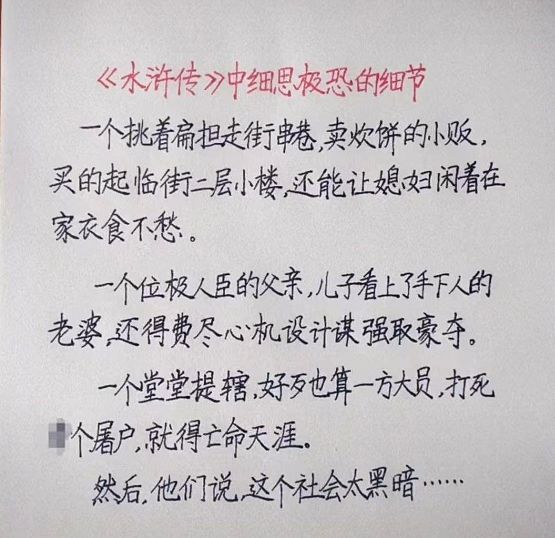 《水浒传》中细思极恐的细节
一个挑着扁担走街串巷,卖炊饼的小贩,
买的起临街二层小楼,还能让媳妇闲着在
家衣食不愁。
一个位极人臣的父亲,儿子看上了手下人的
老婆,还得费尽心机设计谋强取豪夺。
一个堂堂提辖,好歹也算一方大员,打死
个屠户,就得亡命天涯。
然后,他们说,这个社会太黑暗……